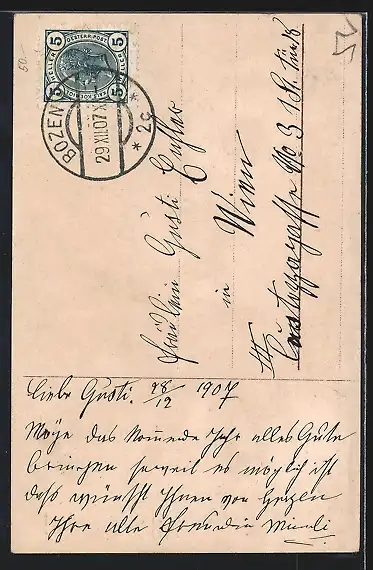 50.-
5 OESTERR. POST 5
HELLER HELLER
5 5
BOZEN
29 XII 07 X
* 2c *
Fräulein Gusti
in
Wien
III
No 3 1. St.
Liebe Gusti. 28/12 1907
Möge das kommende Jahr alles Gute
bringen soweit es möglich ist
das wünscht Ihnen von Herzen
Ihre alte Freundin